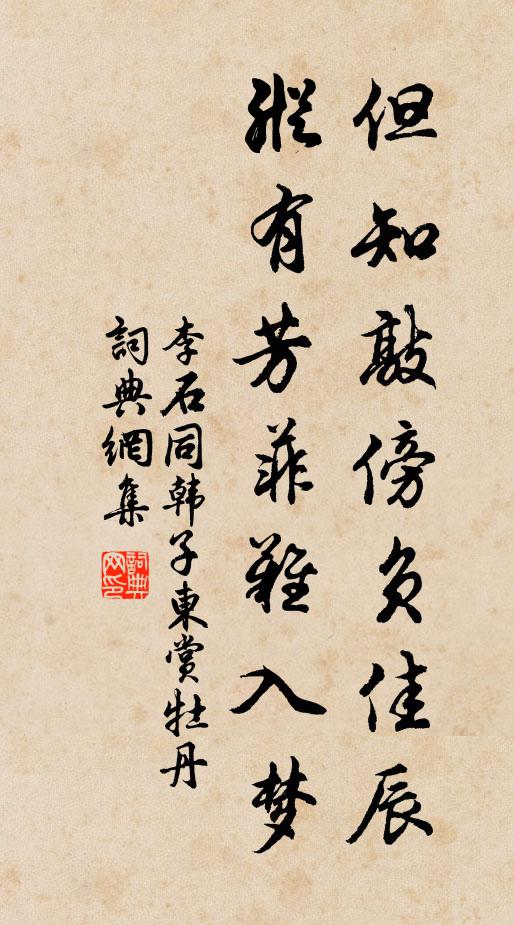 但知敲傍负佳辰
縱有芳菲難入梦
李石同韩子東赏牡丹
詞典網集
詞典网印